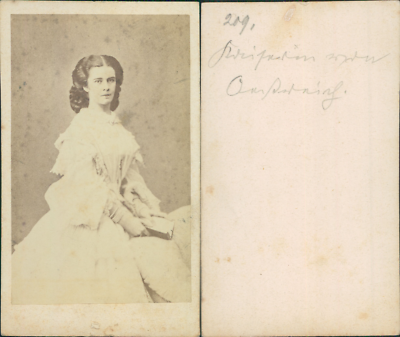 209.
Kaiserin von
Oesterreich.